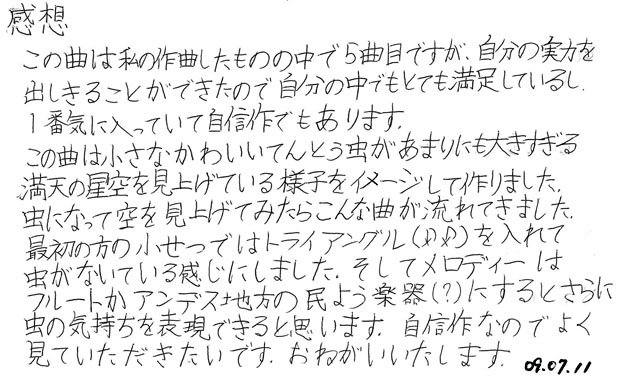 感想
この曲は私の作曲したものの中で5曲目ですが、自分の実力を
出しきることができたので自分の中でもとても満足しているし、
1番気に入っていて自信作でもあります。
この曲は小さなかわいいてんとう虫があまりにも大きすぎる
満天の星空を見上げている様子をイメージして作りました。
虫になって空を見上げてみたらこんな曲が流れてきました。
最初の方の小せつではトライアングル(♪♪)を入れて
虫がないている感じにしました。そしてメロディーは
フルートかアンデス地方の民よう楽器(?)にするとさらに
虫の気持ちを表現できると思います。自信作なのでよく
見ていただきたいです。おねがいいたします。
09.07.11